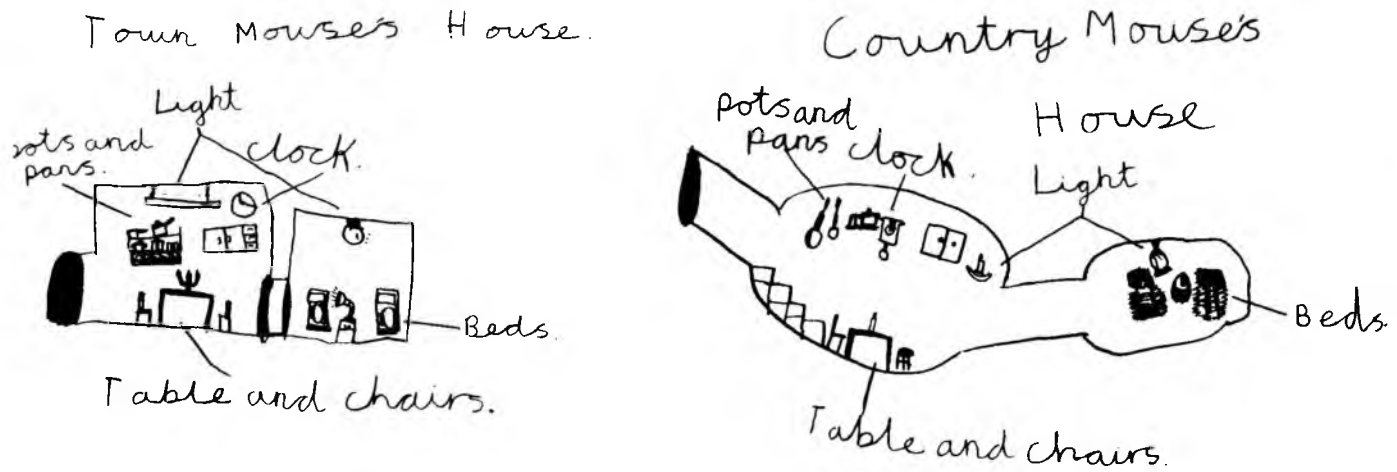 Town Mouse's House.
Light
pots and
pans.
clock.
Beds.
Table and chairs.
Country Mouse's
House
pots and
pans
clock.
Light
Beds.
Table and chairs.